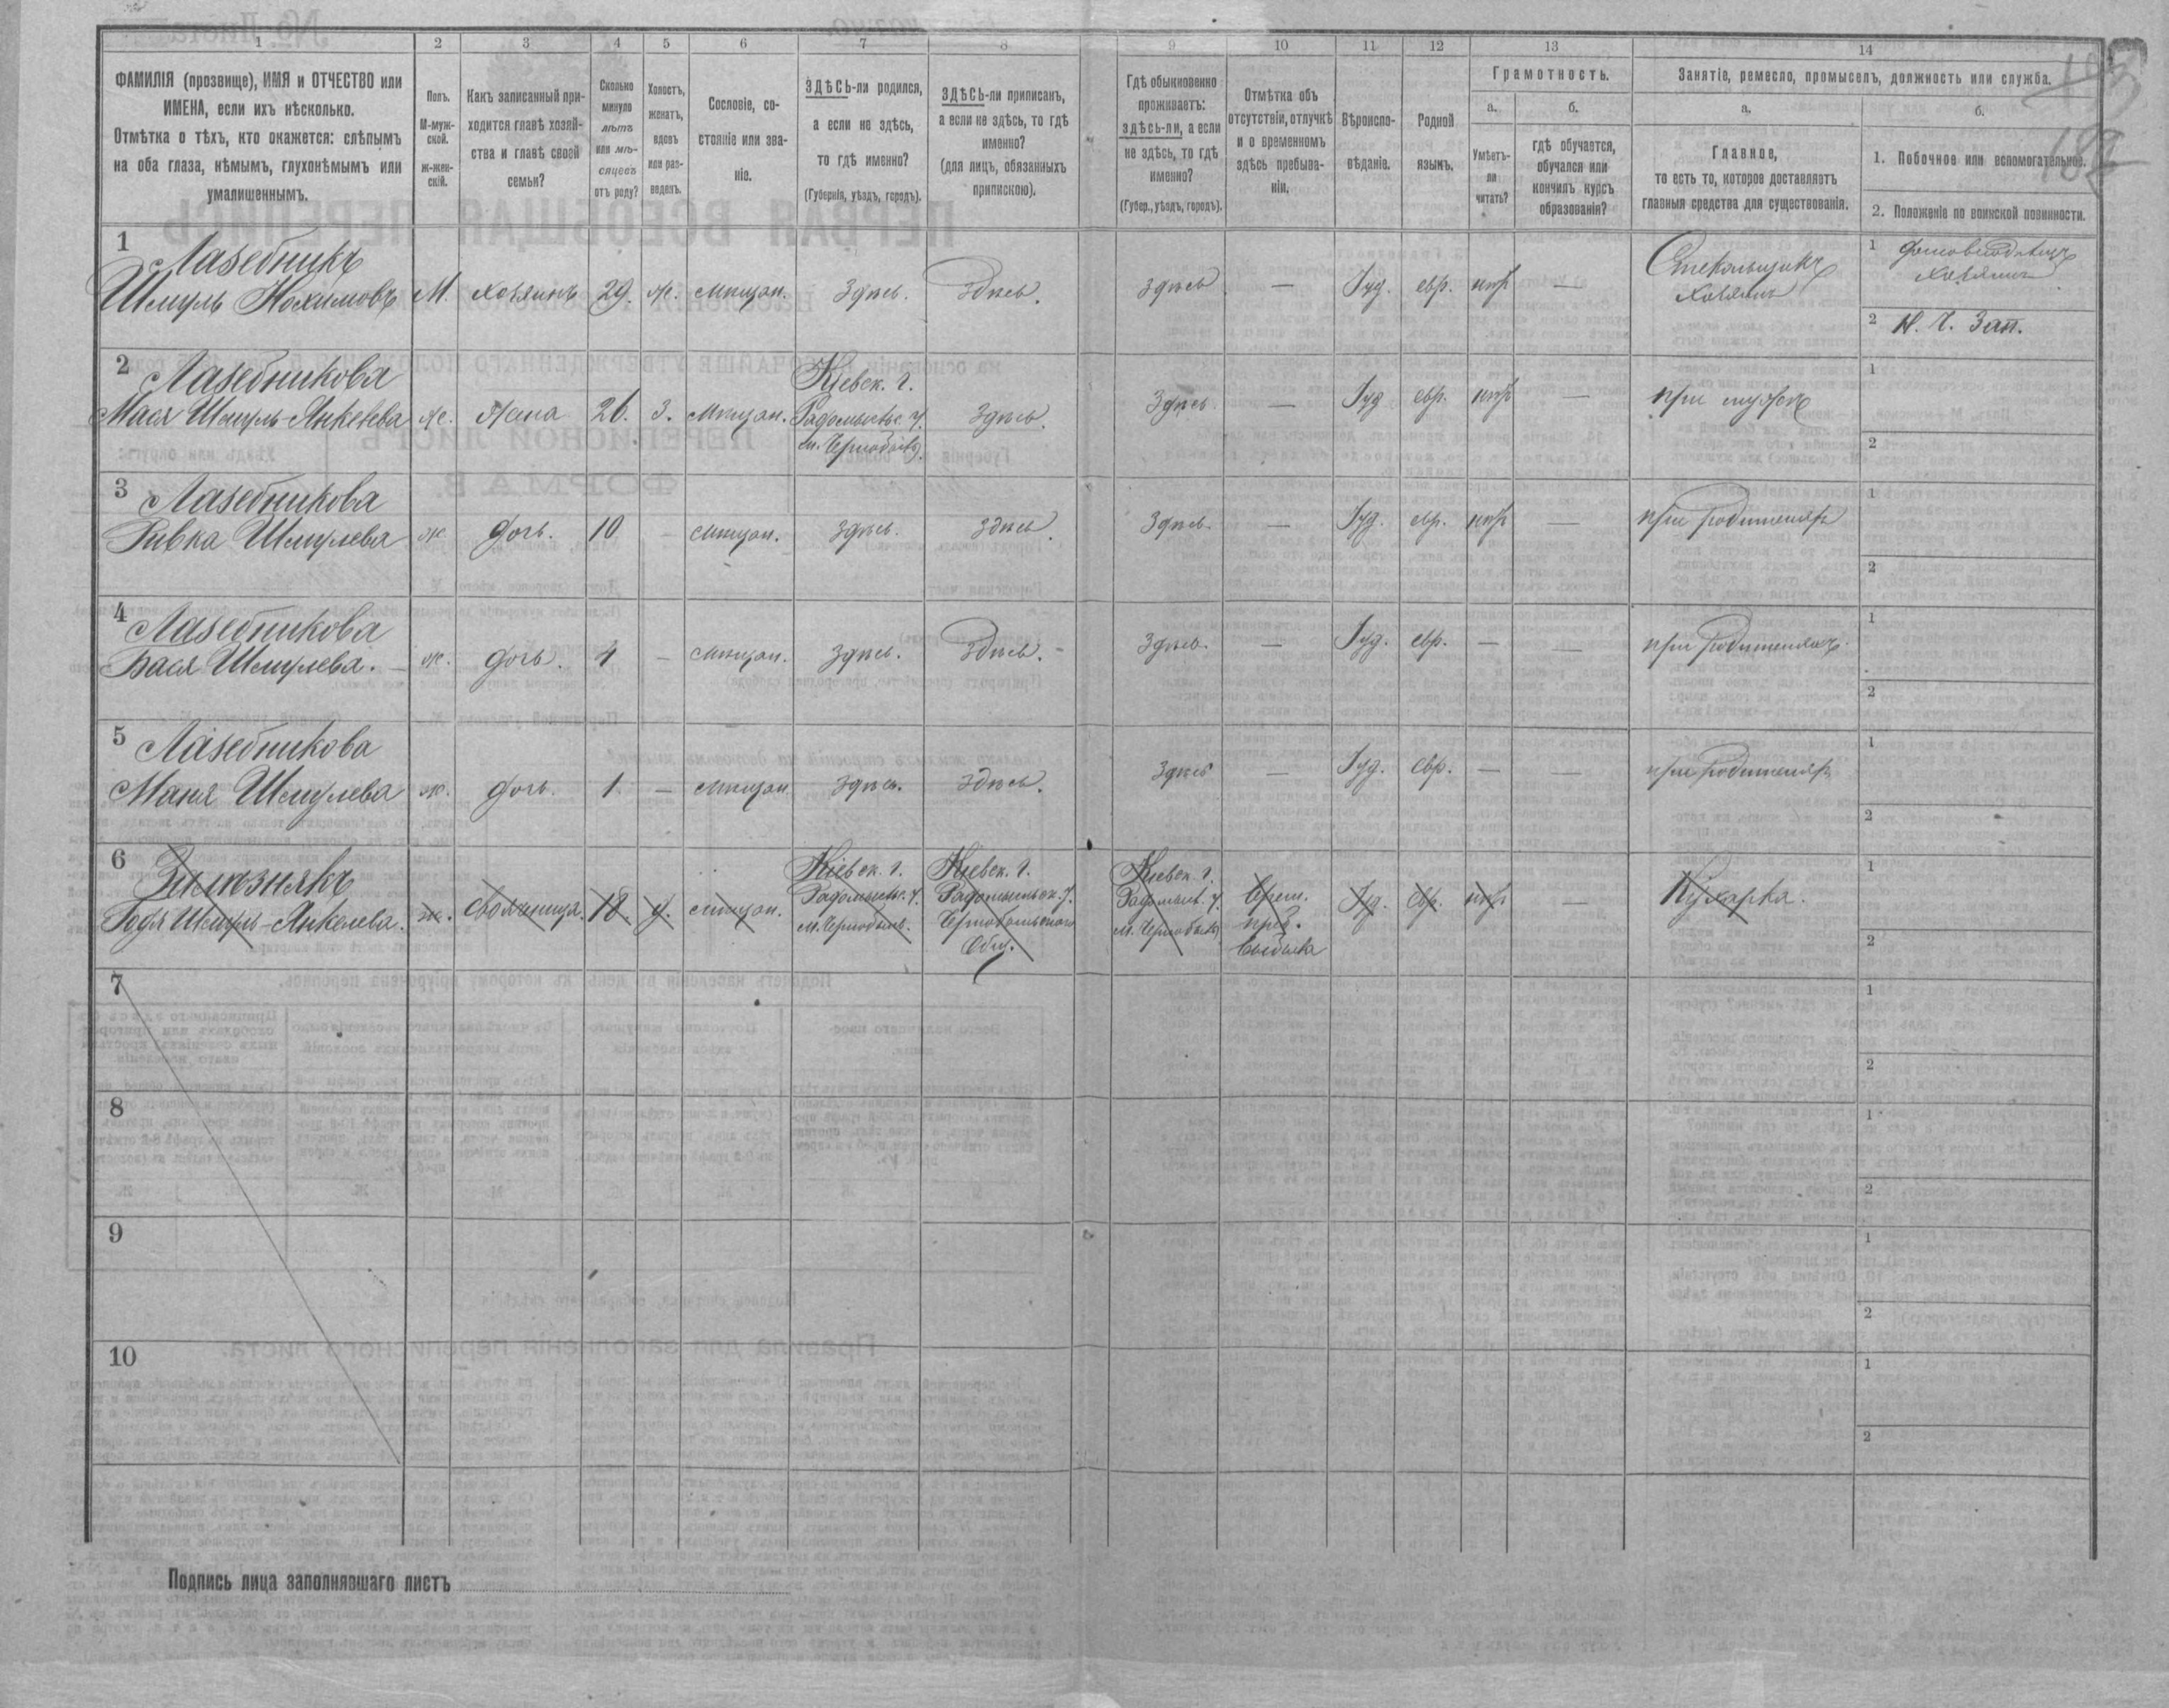 1 2 3 4 5 6 7 8 9 10 11 12 13 14
ФАМИЛІЯ (прозвище), ИМЯ и ОТЧЕСТВО или
ИМЕНА, если ихъ нѣсколько.
Отмѣтка о тѣхъ, кто окажется: слѣпымъ
на оба глаза, нѣмымъ, глухонѣмымъ или
умалишеннымъ.
Полъ.
М-муж-
ской.
ж-жен-
скій.
Какъ записанный при-
ходится главѣ хозяй-
ства и главѣ своей
семьи?
Сколько
минуло
лѣтъ
или мѣ-
сяцевъ
отъ роду?
Холостъ,
женатъ,
вдовъ
или раз-
веденъ.
Сословіе, со-
стояніе или зва-
ніе.
ЗДѢСЬ-ли родился,
а если не здѣсь,
то гдѣ именно?
(Губернія, уѣздъ, городъ).
ЗДѢСЬ-ли приписанъ,
а если не здѣсь, то гдѣ
именно?
(для лицъ, обязанныхъ
припискою).
Гдѣ обыкновенно
проживаетъ:
здѣсь-ли, а если
не здѣсь, то гдѣ
именно?
(Губер., уѣздъ, городъ).
Отмѣтка объ
отсутствіи, отлучкѣ
и о временномъ
здѣсь пребыва-
ніи.
Вѣроиспо-
вѣданіе.
Родной
языкъ.
Грамотность.
а.
Умѣетъ-
ли
читать?
б.
гдѣ обучается,
обучался или
кончилъ курсъ
образованія?
Занятіе, ремесло, промыселъ, должность или служба.
а.
Главное,
то есть то, которое доставляетъ
главныя средства для существованія.
б.
1. Побочное или вспомогательное.
2. Положеніе по воинской повинности.
1 Лазебникъ
Шмуль Нохимовъ М. хозяинъ 29. ж. мѣщан. Здѣсь. Здѣсь. здѣсь — Іуд. евр. —
Стекольщикъ
хозяинъ
1 домовладѣлецъ
хозяинъ
2 Зап.
2 Лазебникова
Мася Шмуль-Янкелева ж. жена 26. З. мѣщан.
Кіевск. г.
Радомысльс. у.
м. Чернобыль.
Здѣсь. Здѣсь — Іуд евр. — при мужѣ
1
2
3 Лазебникова
Ривка Шмулева ж дочь. 10 — мѣщан. здѣсь. здѣсь. Здѣсь. — Іуд. евр. при родителяхъ
1
2
4 Лазебникова
Бася Шмулева. ж. дочь. 4 — мѣщан. Здѣсь. Здѣсь. Здѣсь. — Іуд. евр. — — при родителяхъ.
1
2
5 Лазебникова
Маня Шмулева ж. дочь. 1. — мѣщан. здѣсь. здѣсь. Здѣсь — Іуд. евр. — — при родителяхъ
1
2
6 Зилезнякъ
Годя Шмуль-Янкелева. ж. своячница. 18. д. мѣщан.
Кіевск. г.
Радомысльс. у.
м. Чернобыль.
Кіевск. г.
Радомысльск. у.
Чернобыльскаго
Общ.
Кіевск. г.
Радомысл. у.
м. Чернобыль
Врем.
преб.
выбыла
Іуд. Евр. — Кухарка.
1
2
7
1
2
8
1
2
9
1
2
10
1
2
Подпись лица заполнявшаго листъ